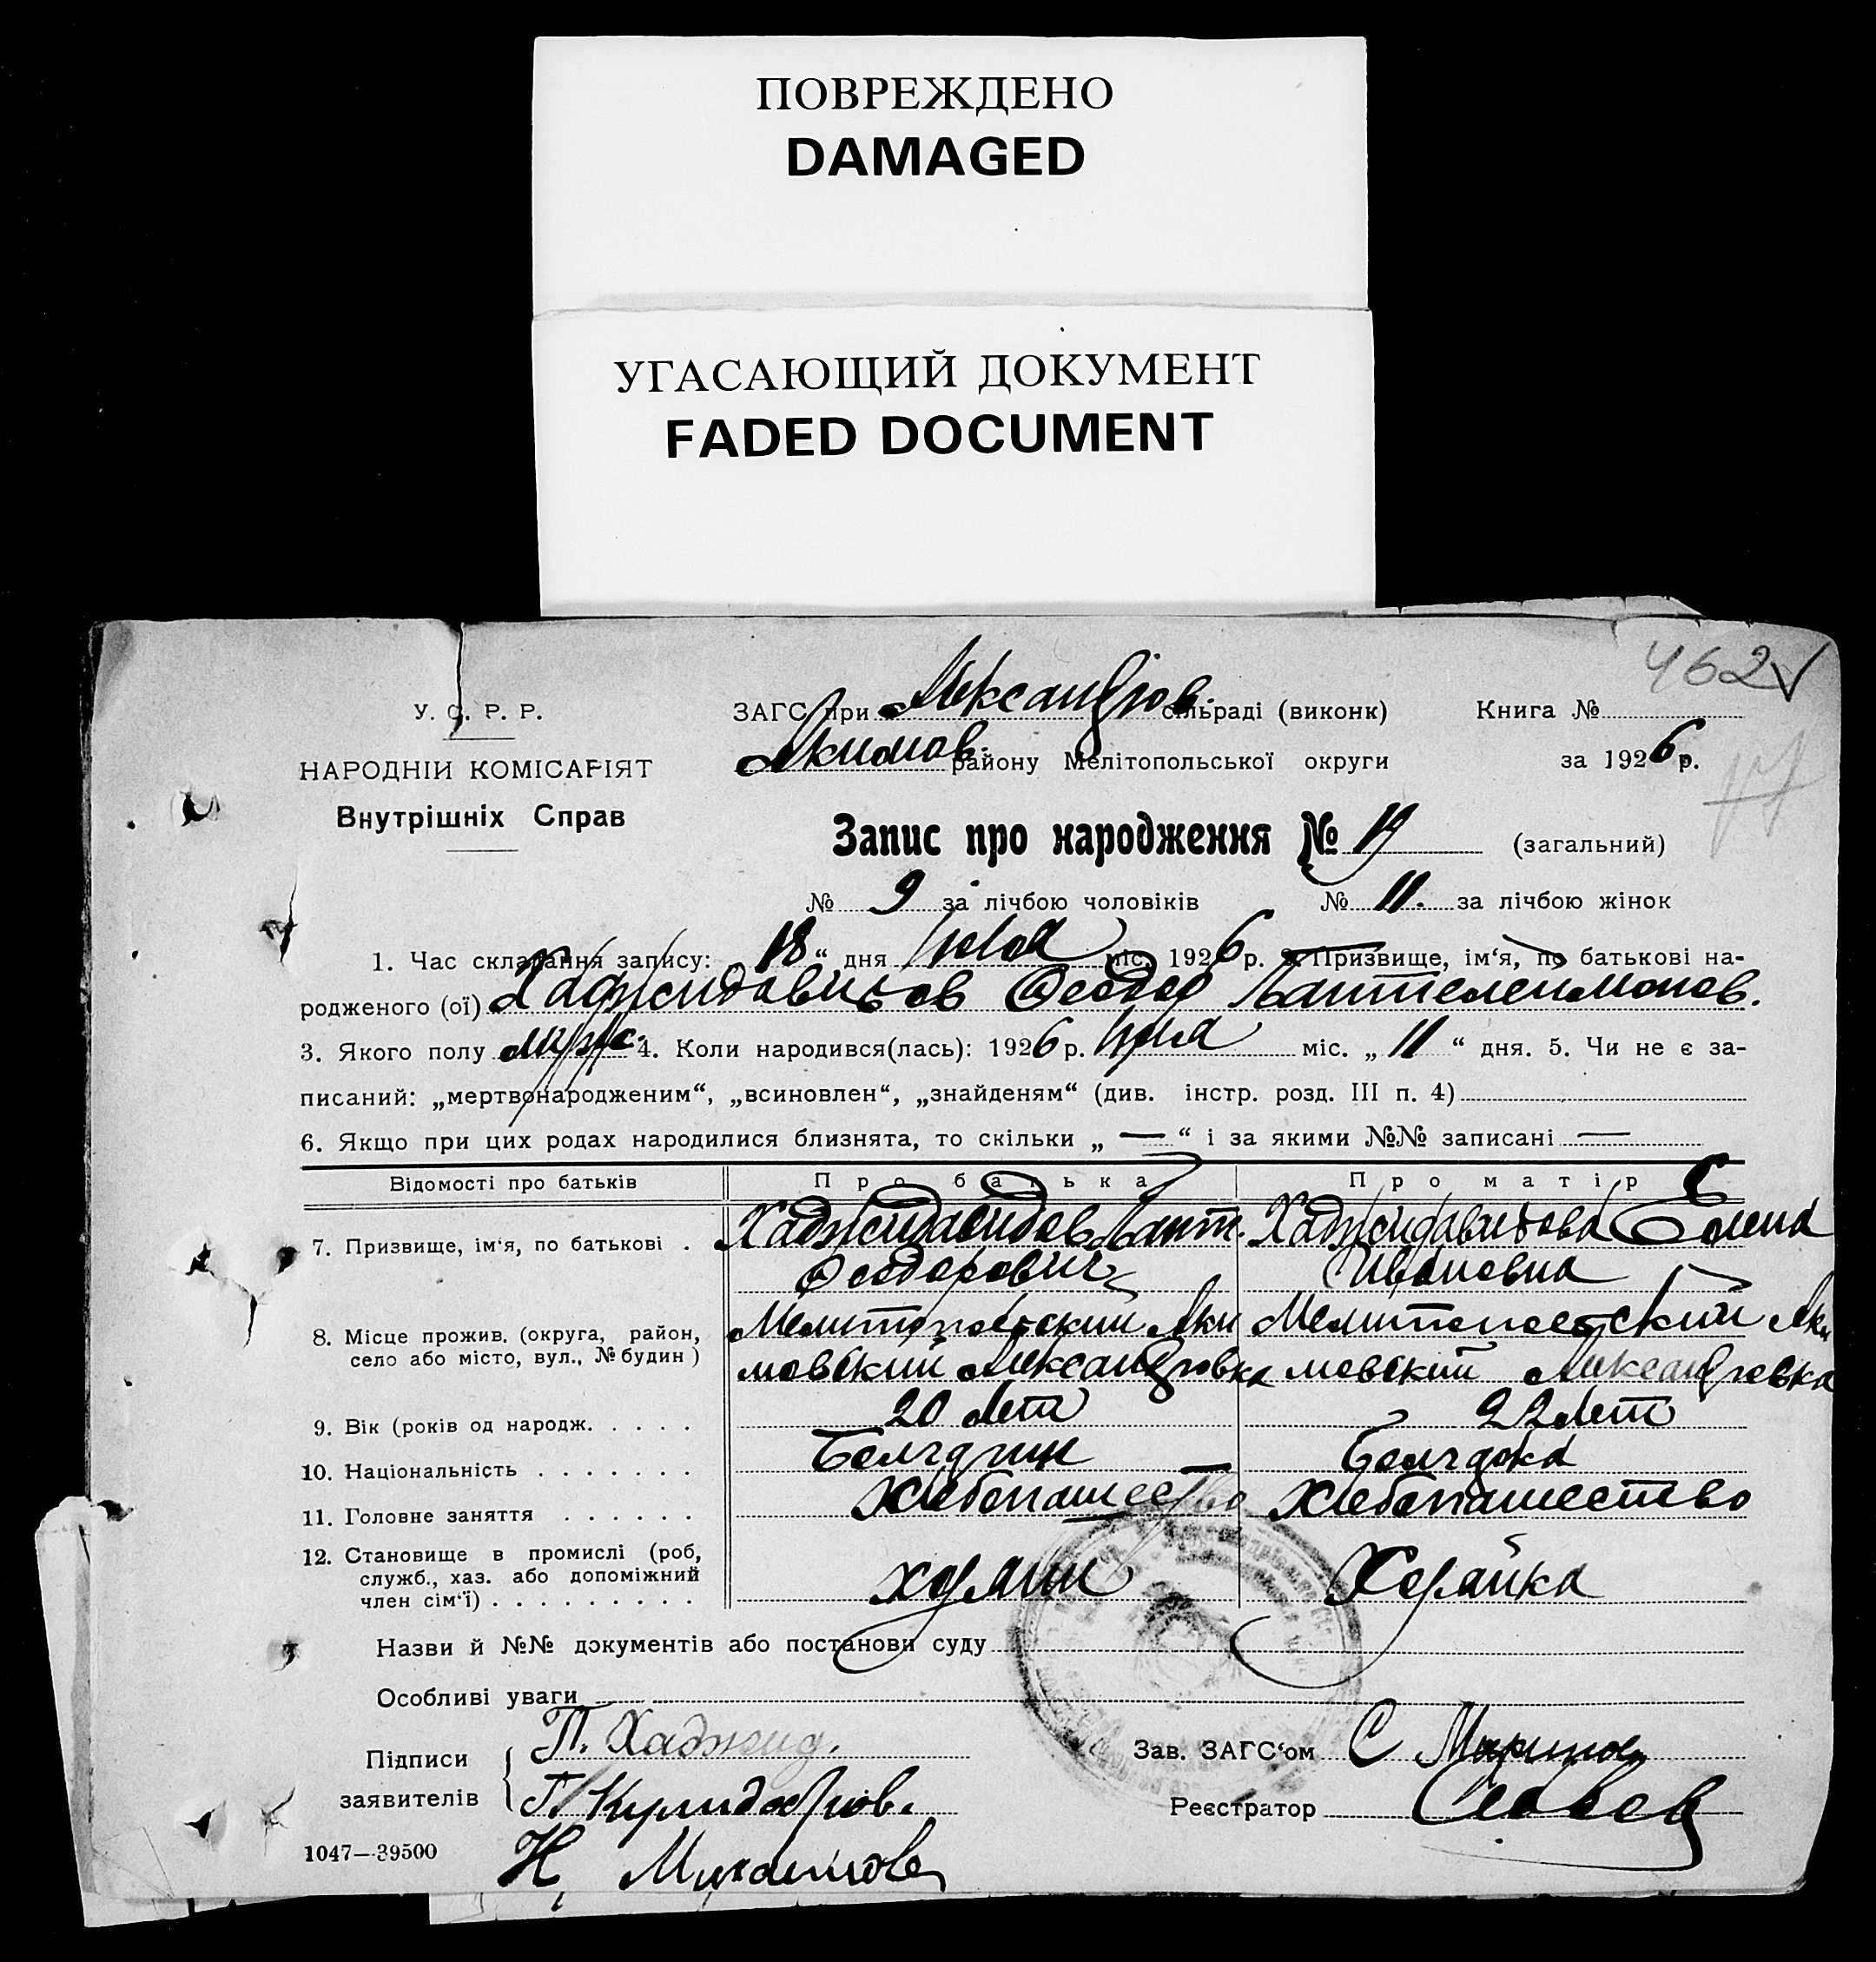 ПОВРЕЖДЕНО
DAMAGED
УГАСАЮЩИЙ ДОКУМЕНТ
FADED DOCUMENT
462 V
У. С. Р. Р.
ЗАГС при Александров. сільраді (виконк) Книга №
НАРОДНІЙ КОМІСАРІЯТ
Акимов. району Мелітопольської округи за 1926 р.
Внутрішніх Справ
Запис про народження № 19 (загальний)
№ 9 за лічбою чоловіків № 11. за лічбою жінок
1. Час складання запису: 18 “ дня Июля міс. 1926 р. 2. Призвище, ім‘я, по батькові на-
родженого (ої) Хаджидавидов Феодор Пантелеимонов.
3. Якого полу муж. 4. Коли народився(лась): 1926 р. міс. „ 11 “ дня. 5. Чи не є за-
писаний: „мертвонародженим“, „всиновлен“, „знайденям“ (див. інстр. розд. III п. 4)
6. Якщо при цих родах народилися близнята, то скільки „ — “ і за якими №№ записані —
Відомості про батьків Про батька Про матір
7. Призвище, ім‘я, по батькові . Хаджидавидов Пант. Хаджидавидова Елена
Феодорович Ивановна
8. Місце прожив. (округа, район, Мелитопольский Аки Мелитопольский Аки
село або місто, вул., № будин ) мовский Александровка мовский Александровка
9. Вік (років од народж. . . . . 20 лет 22 лет
10. Національність . . . . . . . Болгарин Болгарка
11. Головне заняття . . . . . . Хлебопашество Хлебопашество
12. Становище в промислі (роб,
служб., хаз. або допоміжний
член сім‘ї) . . . . . . . . . хозяин Хозяйка
Назви й №№ документів або постанови суду
Особливі уваги
Підписи П. Хаджид. Зав. ЗАГС‘ом С
заявителів Реєстратор
1047—39500 Н